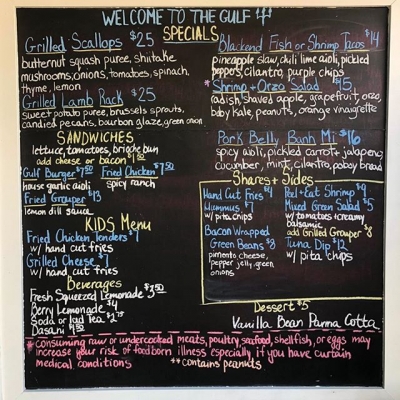 WELCOME TO THE GULF
SPECIALS
Grilled Scallops $25
butternut squash puree, shiitake
mushrooms, onions, tomatoes, spinach,
thyme, lemon
Grilled Lamb Rack $25
sweet potato puree, brussels sprouts,
candied pecans, bourbon glaze, green onion
Blackend Fish or Shrimp Tacos $14
pineapple slaw, chili lime aioli, pickled
peppers, cilantro, purple chips
*Shrimp + Orzo Salad $15
radish, shaved apple, grapefruit, orzo,
baby kale, peanuts, orange vinaigrette
Pork Belly Banh Mi $16
spicy aioli, pickled carrot + jalapeno,
cucumber, mint, cilantro, poboy bread
SANDWICHES
lettuce, tomatoes, brioche bun
add cheese or bacon $1.50
Gulf Burger $7.50
house garlic aioli
Fried Chicken $7.50
spicy ranch
Fried Grouper $13
lemon dill sauce
KIDS Menu
Fried Chicken Tenders $7
w/ hand cut fries
Grilled Cheese $7
w/ hand cut fries
Beverages
Fresh Squeezed Lemonade $3.50
Berry Lemonade $4
Soda or Iced Tea $2.75
Dasani
Shares + Sides
Hand Cut Fries $4
Hummus $7
w/ pita chips
Bacon Wrapped
Green Beans $8
pimento cheese,
pepper jelly, green
onions
Peel + Eat Shrimp $9
Mixed Green Salad $5
w/ tomatoes + creamy
balsamic
add Grilled Grouper $8
Tuna Dip $12
w/ pita chips
Dessert $5
Vanilla Bean Panna Cotta
*consuming raw or undercooked meats, poultry, seafood, shellfish, or eggs may
increase your risk of foodborn illness especially if you have curtain
medical conditions **contains peanuts